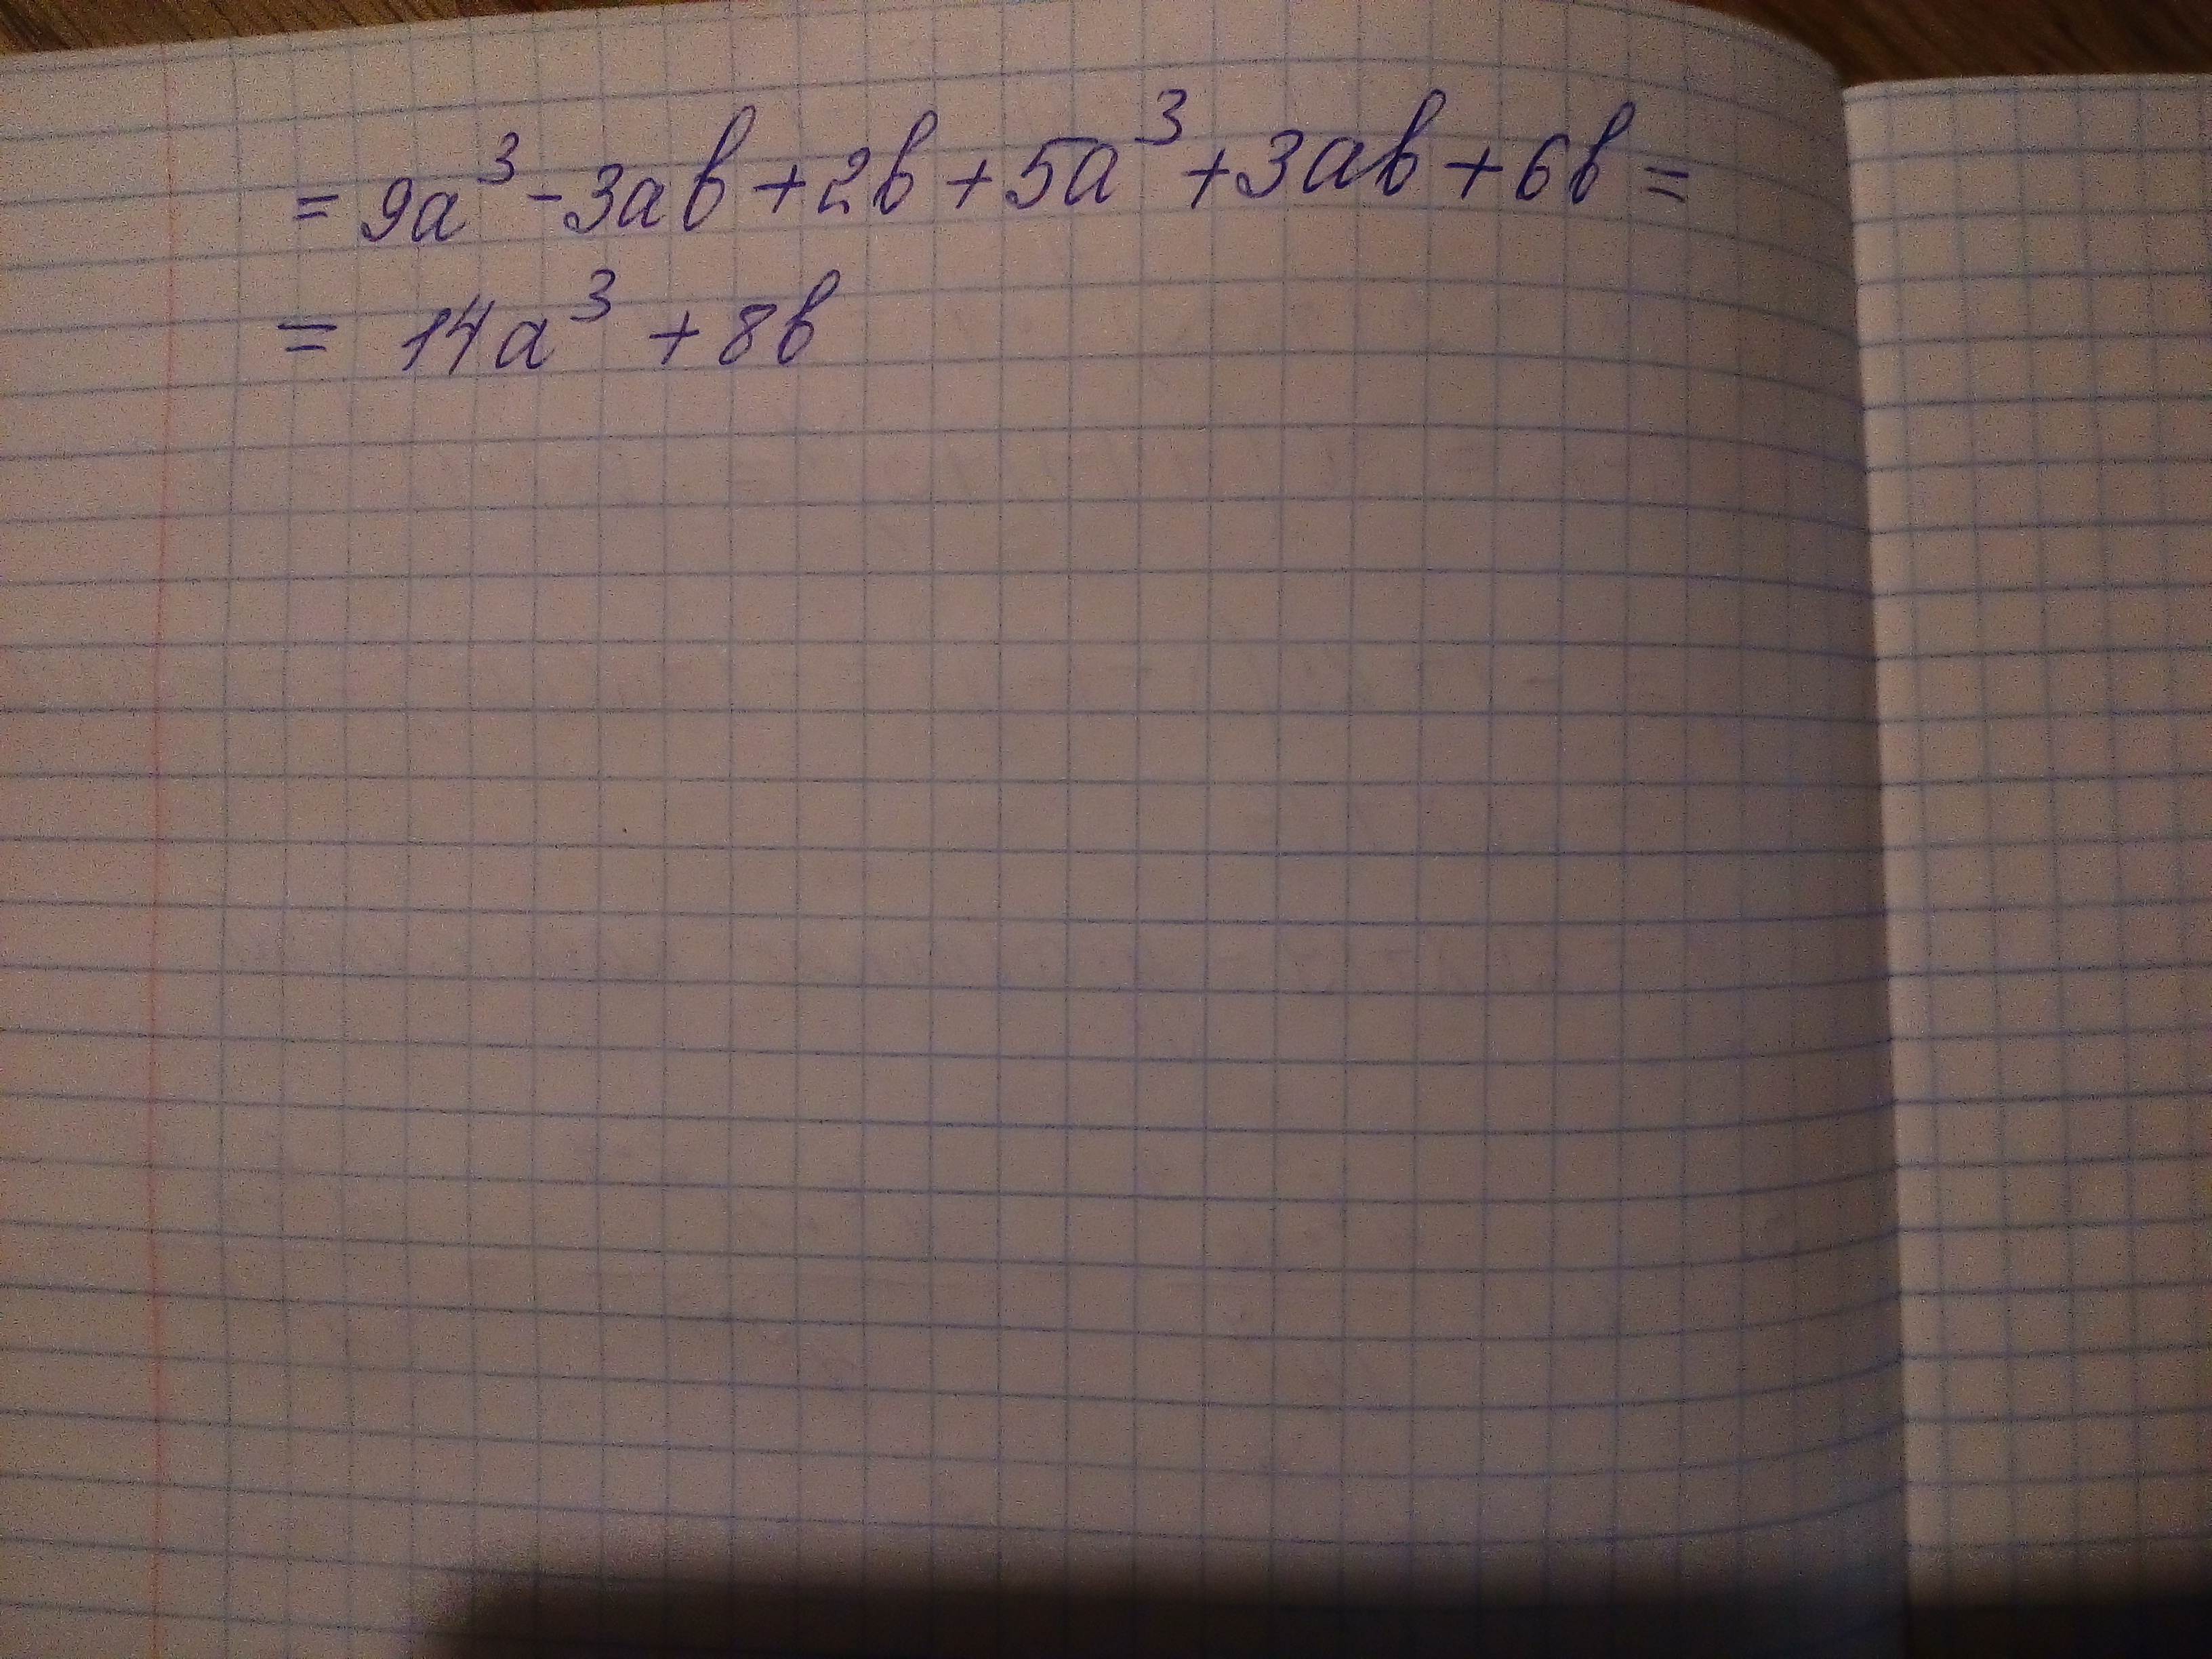 = 9a³ - 3ab + 2b + 5a³ + 3ab + 6b =
= 14a³ + 8b